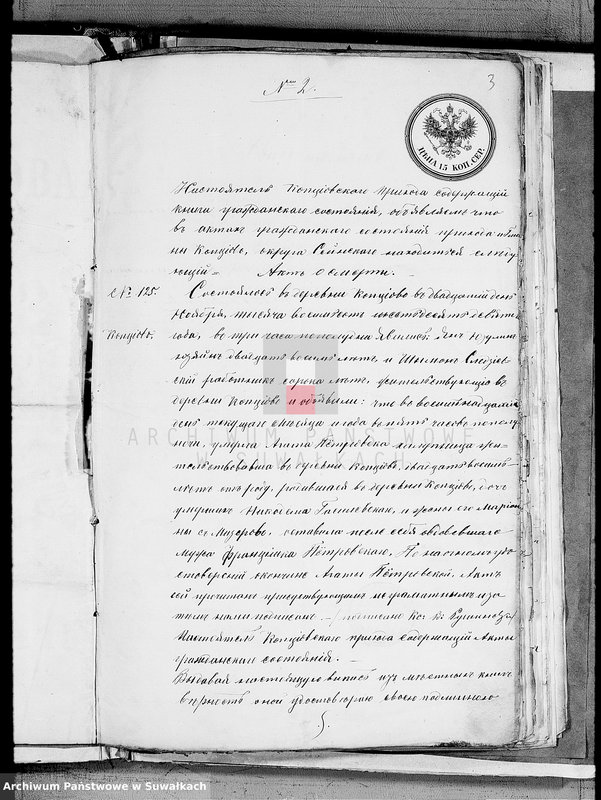 № 2.
3
ЦѢНА 15 КОП. СЕР.
Настоятель Копціовскаго прихода содержащій
книги гражданскаго состоянія, объявляетъ что
въ актахъ гражданскаго состоянія прихода и гми
ны Копціово, округа Сейнскаго находится слѣду
ющій = Актъ о смерти. —
№ 125.
Копціово.
Состоялось въ деревни Копціово въ двадцатый день
Ноября, тысяча восемьсотъ шестьдесятъ девят
года, въ три часа пополудни явились: Янъ
двадцать восемь лѣтъ, и Шымонъ
работникъ сорока лѣтъ, жительствующіе въ
деревни Копціове и объявили: что въ восемнадцатый
день текущаго мѣсяца и года въ пять часовъ пополу
ночи, умерла Агата Петровска жи
тельствовавша въ деревни Копціове, двадцать восемь
лѣтъ отъ роду, родившаяся въ деревни Копціове, дочь
умершихъ Никодема и жены его Маріан
ны съ оставила послѣ себя овдовѣвшаго
мужа Францишка Петровскаго. По настоящемъ удо
стовереніи окончинѣ Агаты Петровской, Актъ
сей прочитанъ присутствующимъ неграматнымъ и за
тѣмъ нами подписанъ — /подписано Кс:
Настоятель Копціовскаго прихода содержащій Акты
гражданскаго состоянія. —
Выдавая настоящую выпись изъ мѣстныхъ книгъ
верность оной удостоверяю своею подписью
ARCHIWUM PAŃSTWOWE
W SUWAŁKACH
Archiwum Państwowe w Suwałkach